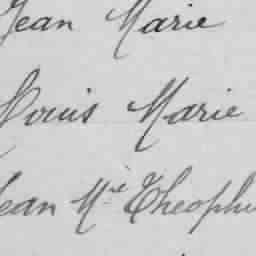 Jean Marie
Louis Marie
Jean Mie Théophi